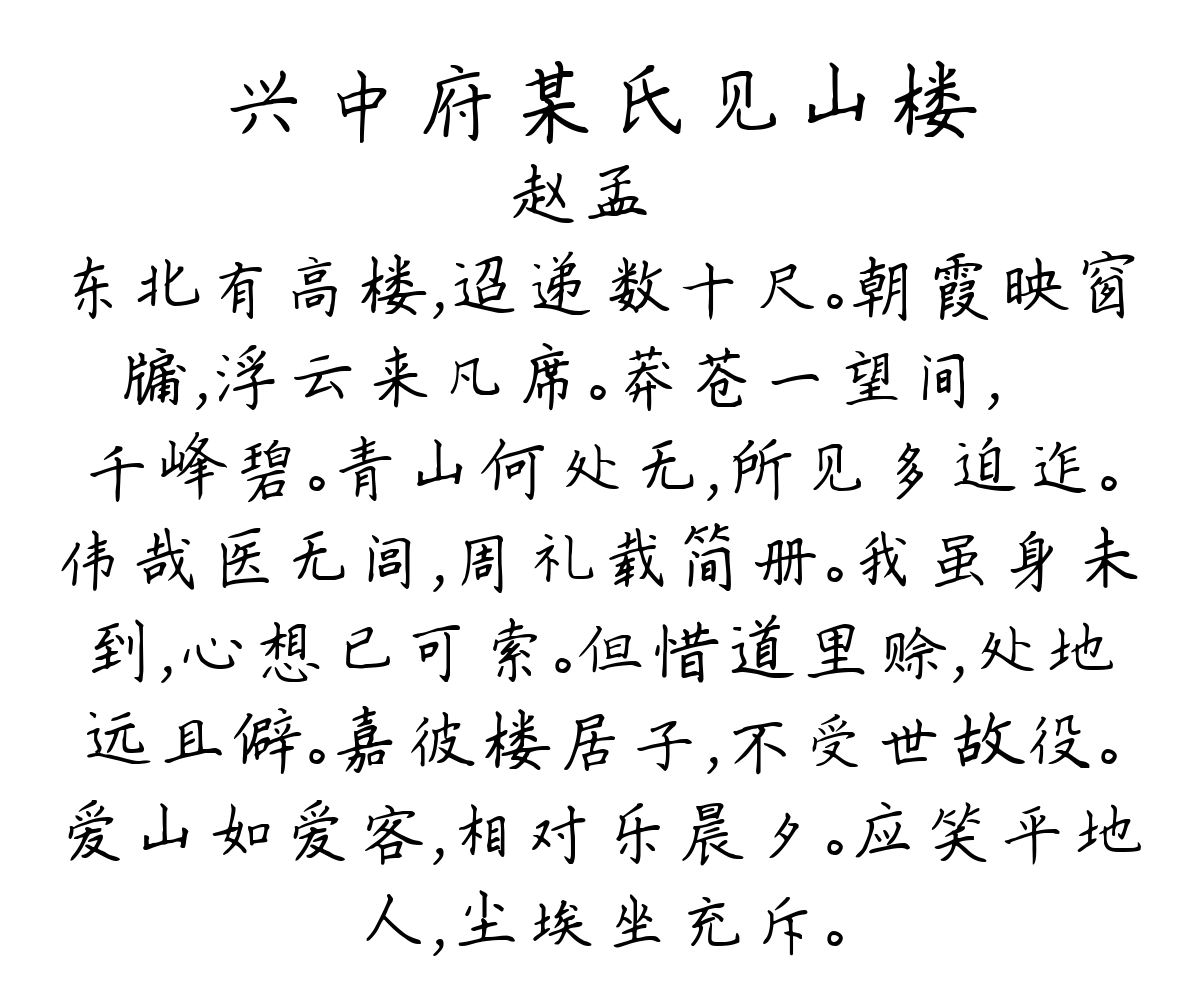 兴中府某氏见山楼
赵孟
东北有高楼,迢递数十尺。朝霞映窗
牖,浮云来凡席。莽苍一望间,
千峰碧。青山何处无,所见多迫迮。
伟哉医无闾,周礼载简册。我虽身未
到,心想已可索。但惜道里赊,处地
远且僻。嘉彼楼居子,不受世故役。
爱山如爱客,相对乐晨夕。应笑平地
人,尘埃坐充斥。